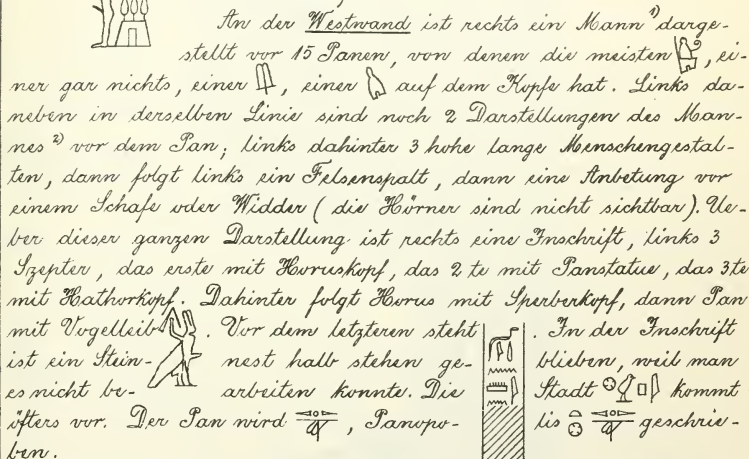 An der Westwand ist rechts ein Mann 1) darge-
stellt vor 15 Panen, von denen die meisten , ei-
ner gar nichts, einer , einer auf dem Kopfe hat. Links da-
neben in derselben Linie sind noch 2 Darstellungen des Man-
nes 2) vor dem Pan; links dahinter 3 hohe lange Menschengestal-
ten, dann folgt links ein Felsenspalt, dann eine Anbetung vor
einem Schafe oder Widder (die Hörner sind nicht sichtbar). Ue-
ber dieser ganzen Darstellung ist rechts eine Inschrift, links 3
Szepter, das erste mit Horuskopf, das 2 te mit Panstatue, das 3te
mit Hathorkopf. Dahinter folgt Horus mit Sperberkopf, dann Pan
mit Vogelleib . Vor dem letzteren steht . In der Inschrift
ist ein Stein- nest halb stehen ge- blieben, weil man
es nicht be- arbeiten konnte. Die Stadt kommt
öfters vor. Der Pan wird , Panopo- lis geschrie-
ben.